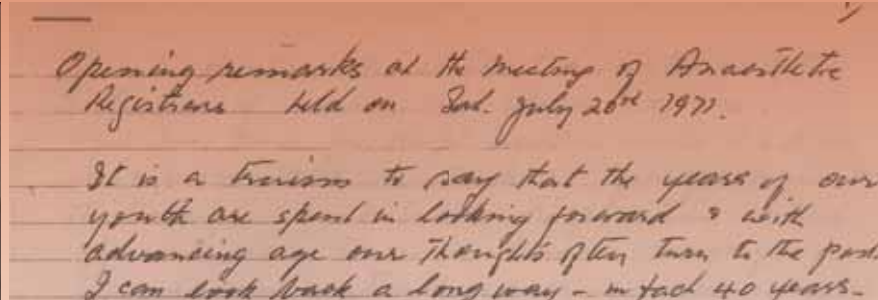 Opening remarks at the meeting of Anaesthetic
Registrars held on Sat. July 20th 1971.
It is a truism to say that the years of our
youth are spent in looking forward & with
advancing age our thoughts often turn to the past
I can look back a long way - in fact 40 years-